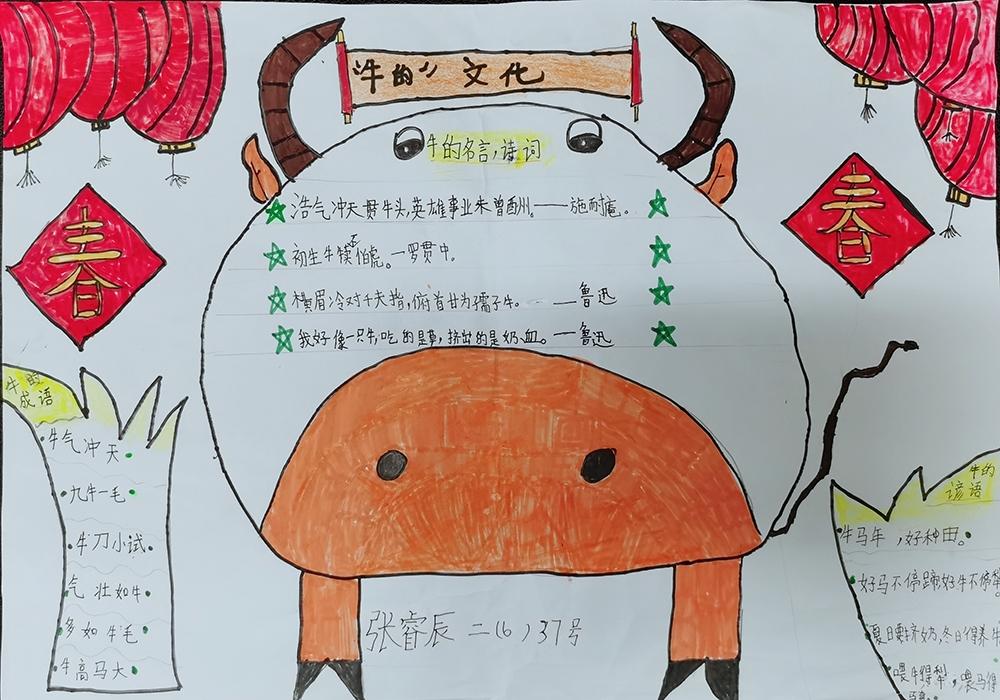 “牛的” 文化
牛的名言,诗词
浩气冲天贯牛头,英雄事业未曾酉州。——施耐庵。
初生牛犊不怕虎。—罗贯中。
横眉冷对千夫指,俯首甘为孺子牛。——鲁迅
我好像一只牛,吃的是草,挤出的是奶、血。——鲁迅
春
春
牛的
成语
牛气冲天
九牛一毛
牛刀小试
气壮如牛
多如牛毛
牛高马大
牛的
谚语
牛马年,好种田。
好马不停蹄好牛不停犁
夏日要挤奶,冬日得养牛
喂牛得犁,喂马得
张睿辰 二(6)37号